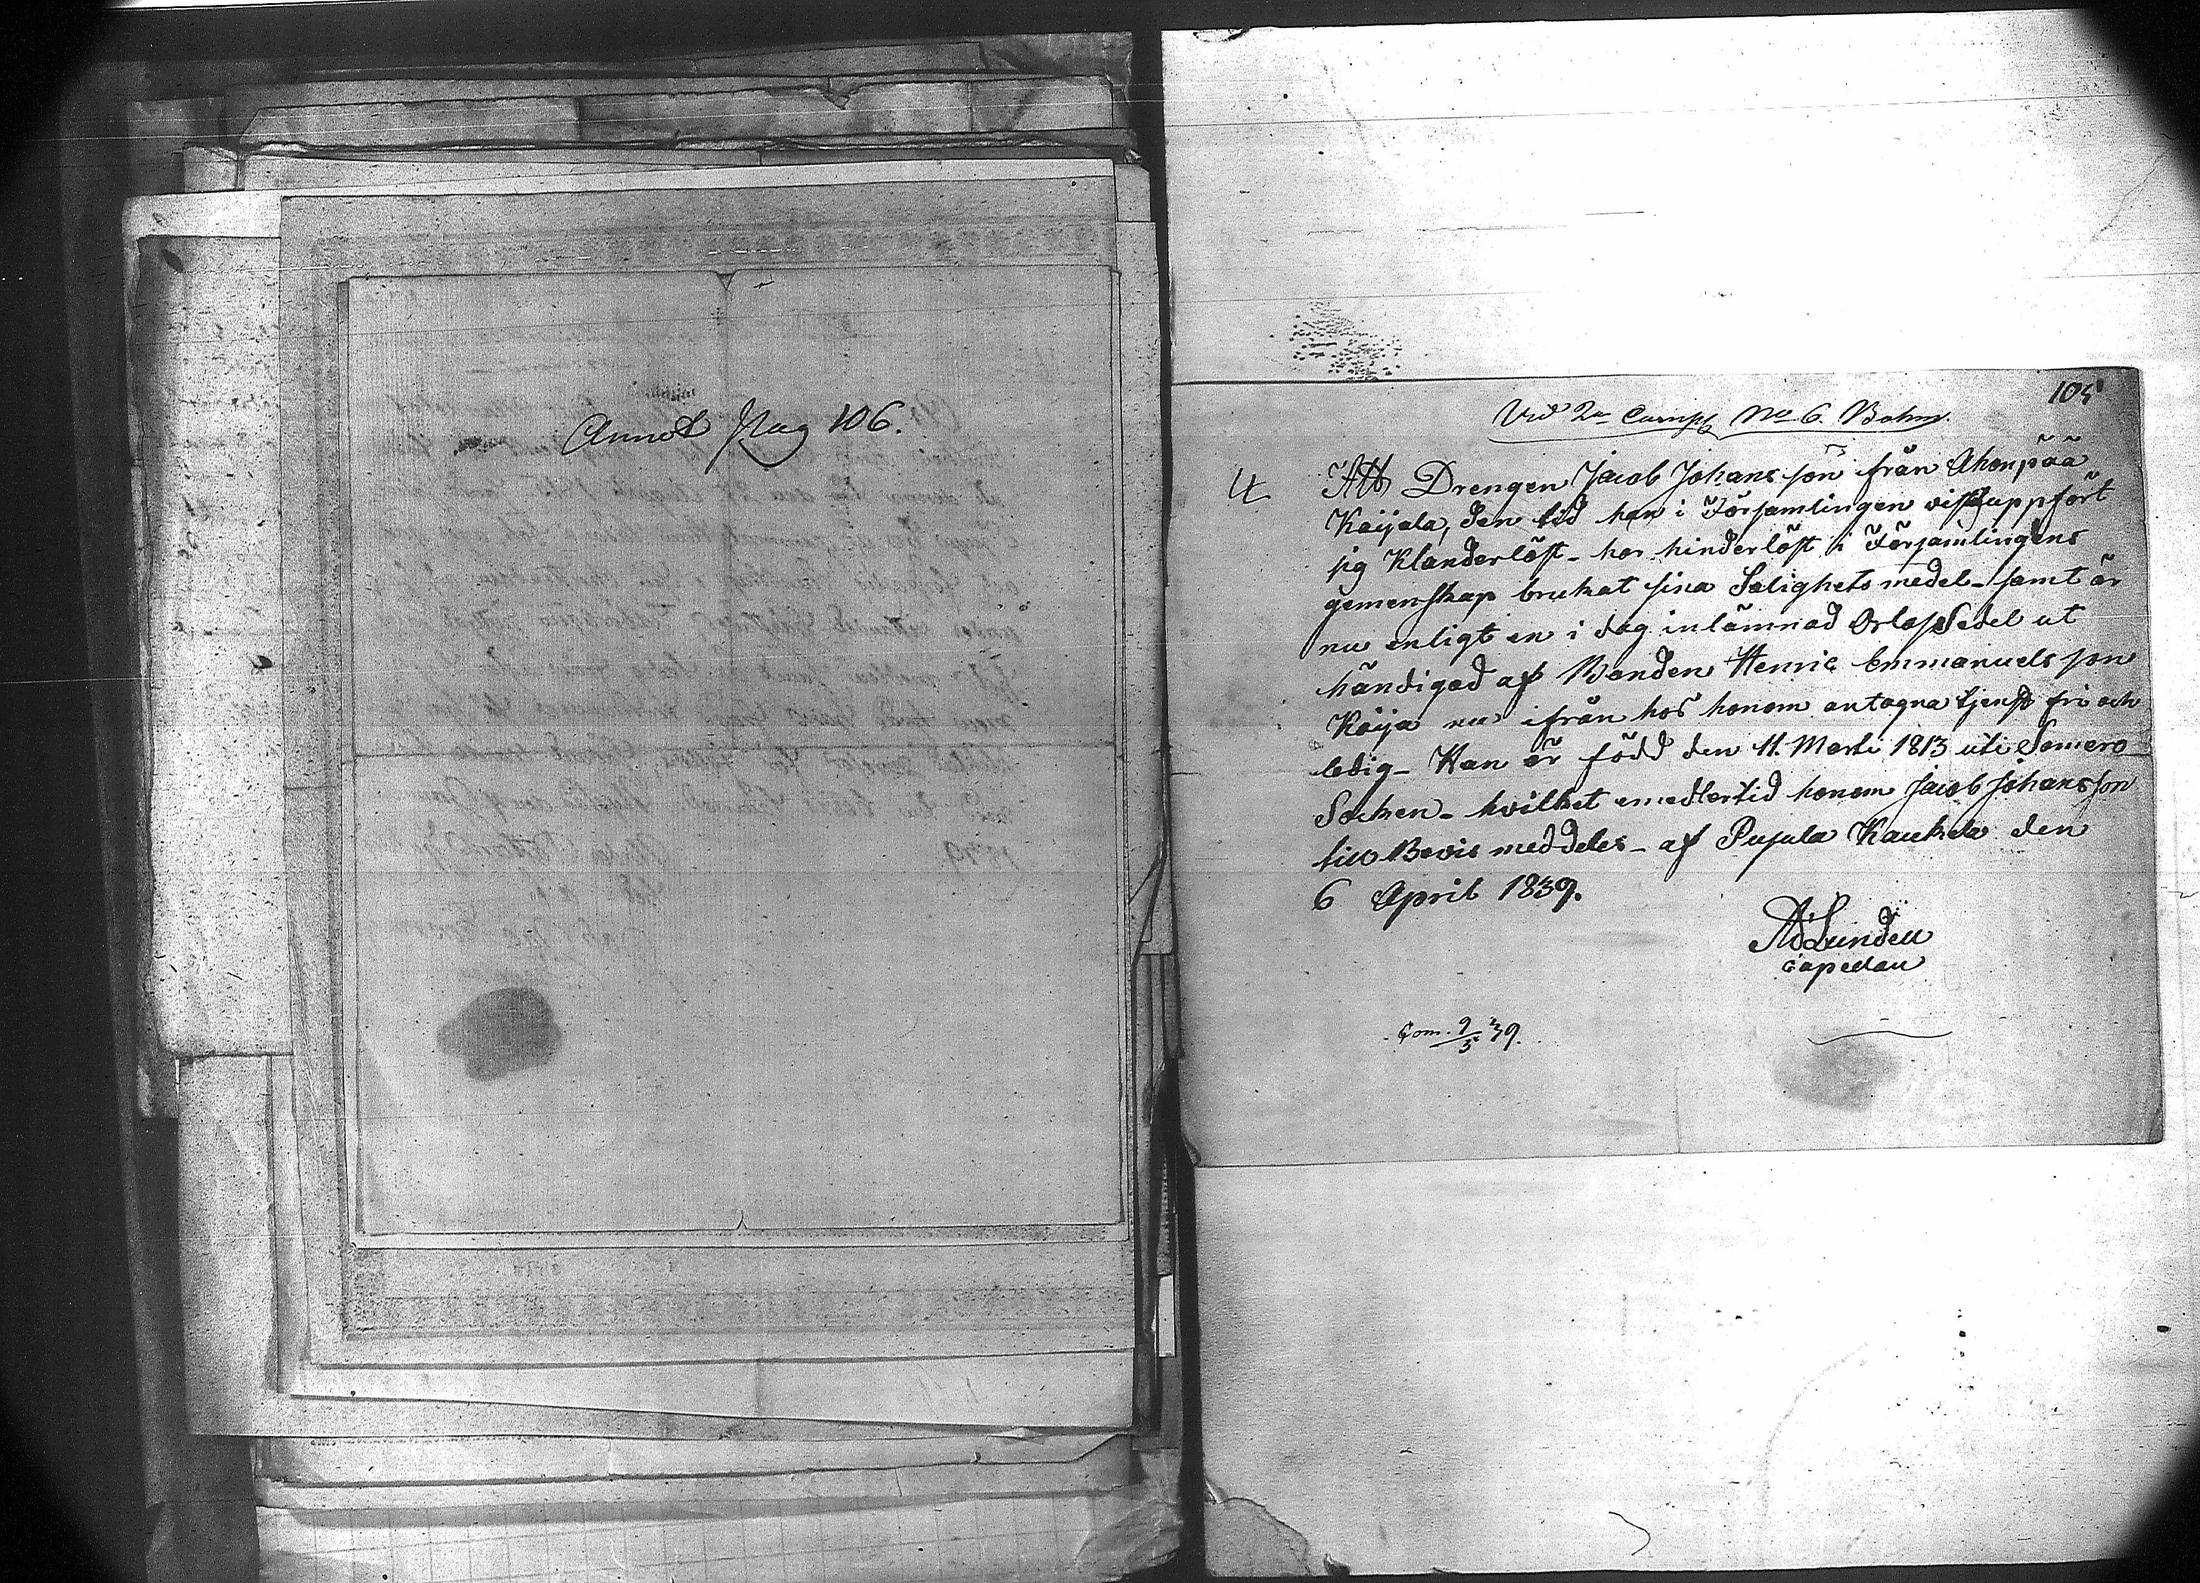 Annot Pag 106.
105
Vid 2a Comp. No 6. Bohm.
4
Att Drengen Jacob Johansson från Ahonpää
Koijala, den tid han i Församlingen vistas uppfört
sig Klanderlöst - har hinderlöst i Församlingens
gemenskap brukat sina Salighets medel - samt är
nu enligt en i dag inlämnad OrlofsSedel ut
händigad af Bonden Henric Emmanuelsson
Koija nu ifrån hos honom antagna tjenst fri och
ledig - Han är född den 11. Marti 1813 uti Somero
Socken - hvilket emedlertid honom Jacob Johansson
till Bevis meddeles - af Pujula Kaukela den
6 April 1839.
Ad Lundell
Capellan
Com. 9/5 39.